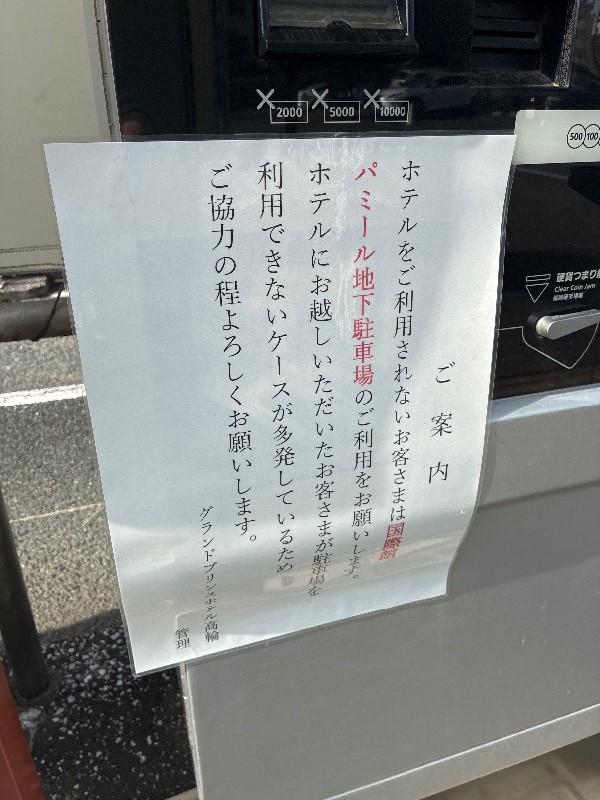 2000 5000 10000
500 100
硬貨つまり
Clear Coin Jam
ご案内
ホテルをご利用されないお客さまは国際館
パミール地下駐車場のご利用をお願いします。
ホテルにお越しいただいたお客さまが駐車場を
利用できないケースが多発しているため
ご協力の程よろしくお願いします。
グランドプリンスホテル高輪
管理